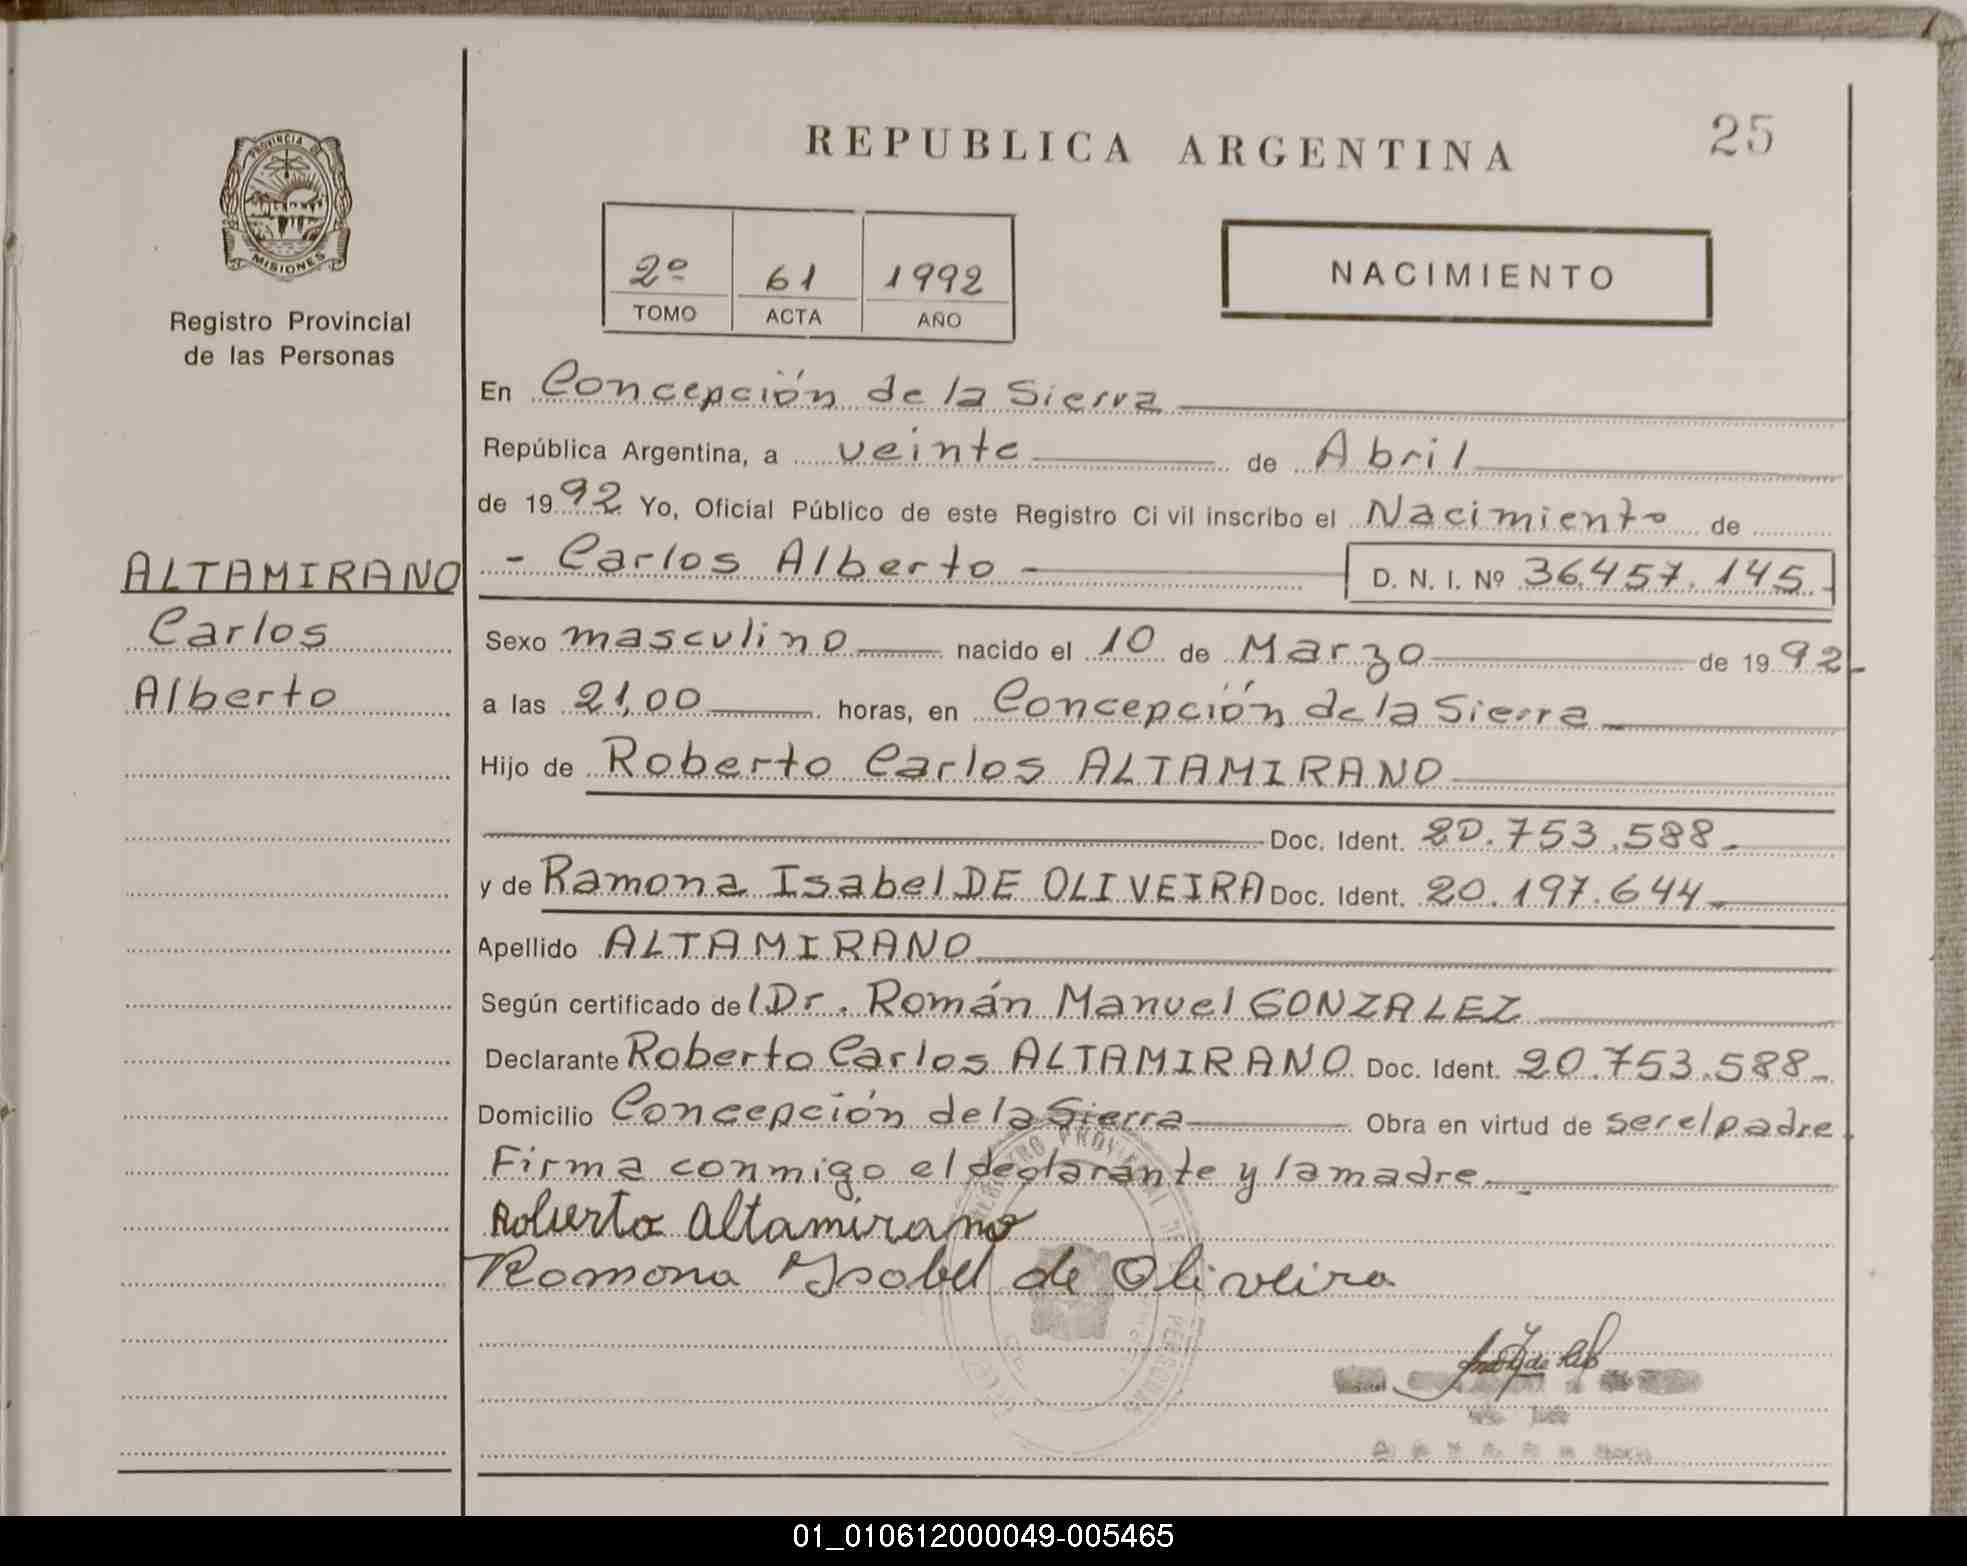 REPUBLICA ARGENTINA
25
PROVINCIA DE
MISIONES
Registro Provincial
de las Personas
2º 61 1992
TOMO ACTA AÑO
NACIMIENTO
En Concepción de la Sierra
República Argentina, a veinte de Abril
de 1992 Yo, Oficial Público de este Registro Civil inscribo el Nacimiento de
ALTAMIRANO
Carlos
Alberto
- Carlos Alberto - D. N. I. Nº 36.457.145.-
Sexo masculino nacido el 10 de Marzo de 1992-
a las 21,00 horas, en Concepción de la Sierra
Hijo de Roberto Carlos ALTAMIRANO
Doc. Ident. 20.753.588-
y de Ramona Isabel DE OLIVEIRA Doc. Ident. 20.197.644-
Apellido ALTAMIRANO
Según certificado del Dr. Román Manuel GONZALEZ
Declarante Roberto Carlos ALTAMIRANO Doc. Ident. 20.753.588-
Domicilio Concepción de la Sierra Obra en virtud de ser el padre.
Firma conmigo el declarante y la madre.-
Roberto Altamirano
Ramona Ysabel de Oliveira
01_010612000049-005465